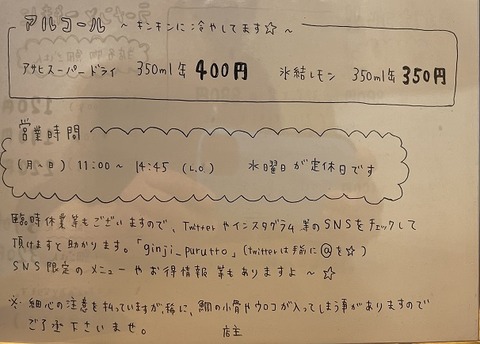 アルコール ～キンキンに冷やしてます☆～
アサヒスーパードライ 350ml缶 400円 氷結レモン 350ml缶 350円
営業時間
(月～日) 11:00～14:45 (L.O) 水曜日が定休日です
臨時休業等もございますので、Twitterやインスタグラム等のSNSをチェックして
頂けますと助かります。「ginji_purutto」(twitterは手前に@を☆)
SNS限定のメニューやお得情報等もありますよ～☆
※細心の注意を払っていますが、稀に、鯛の小骨やウロコが入ってしまう事がありますので
ご了承下さいませ。 店主